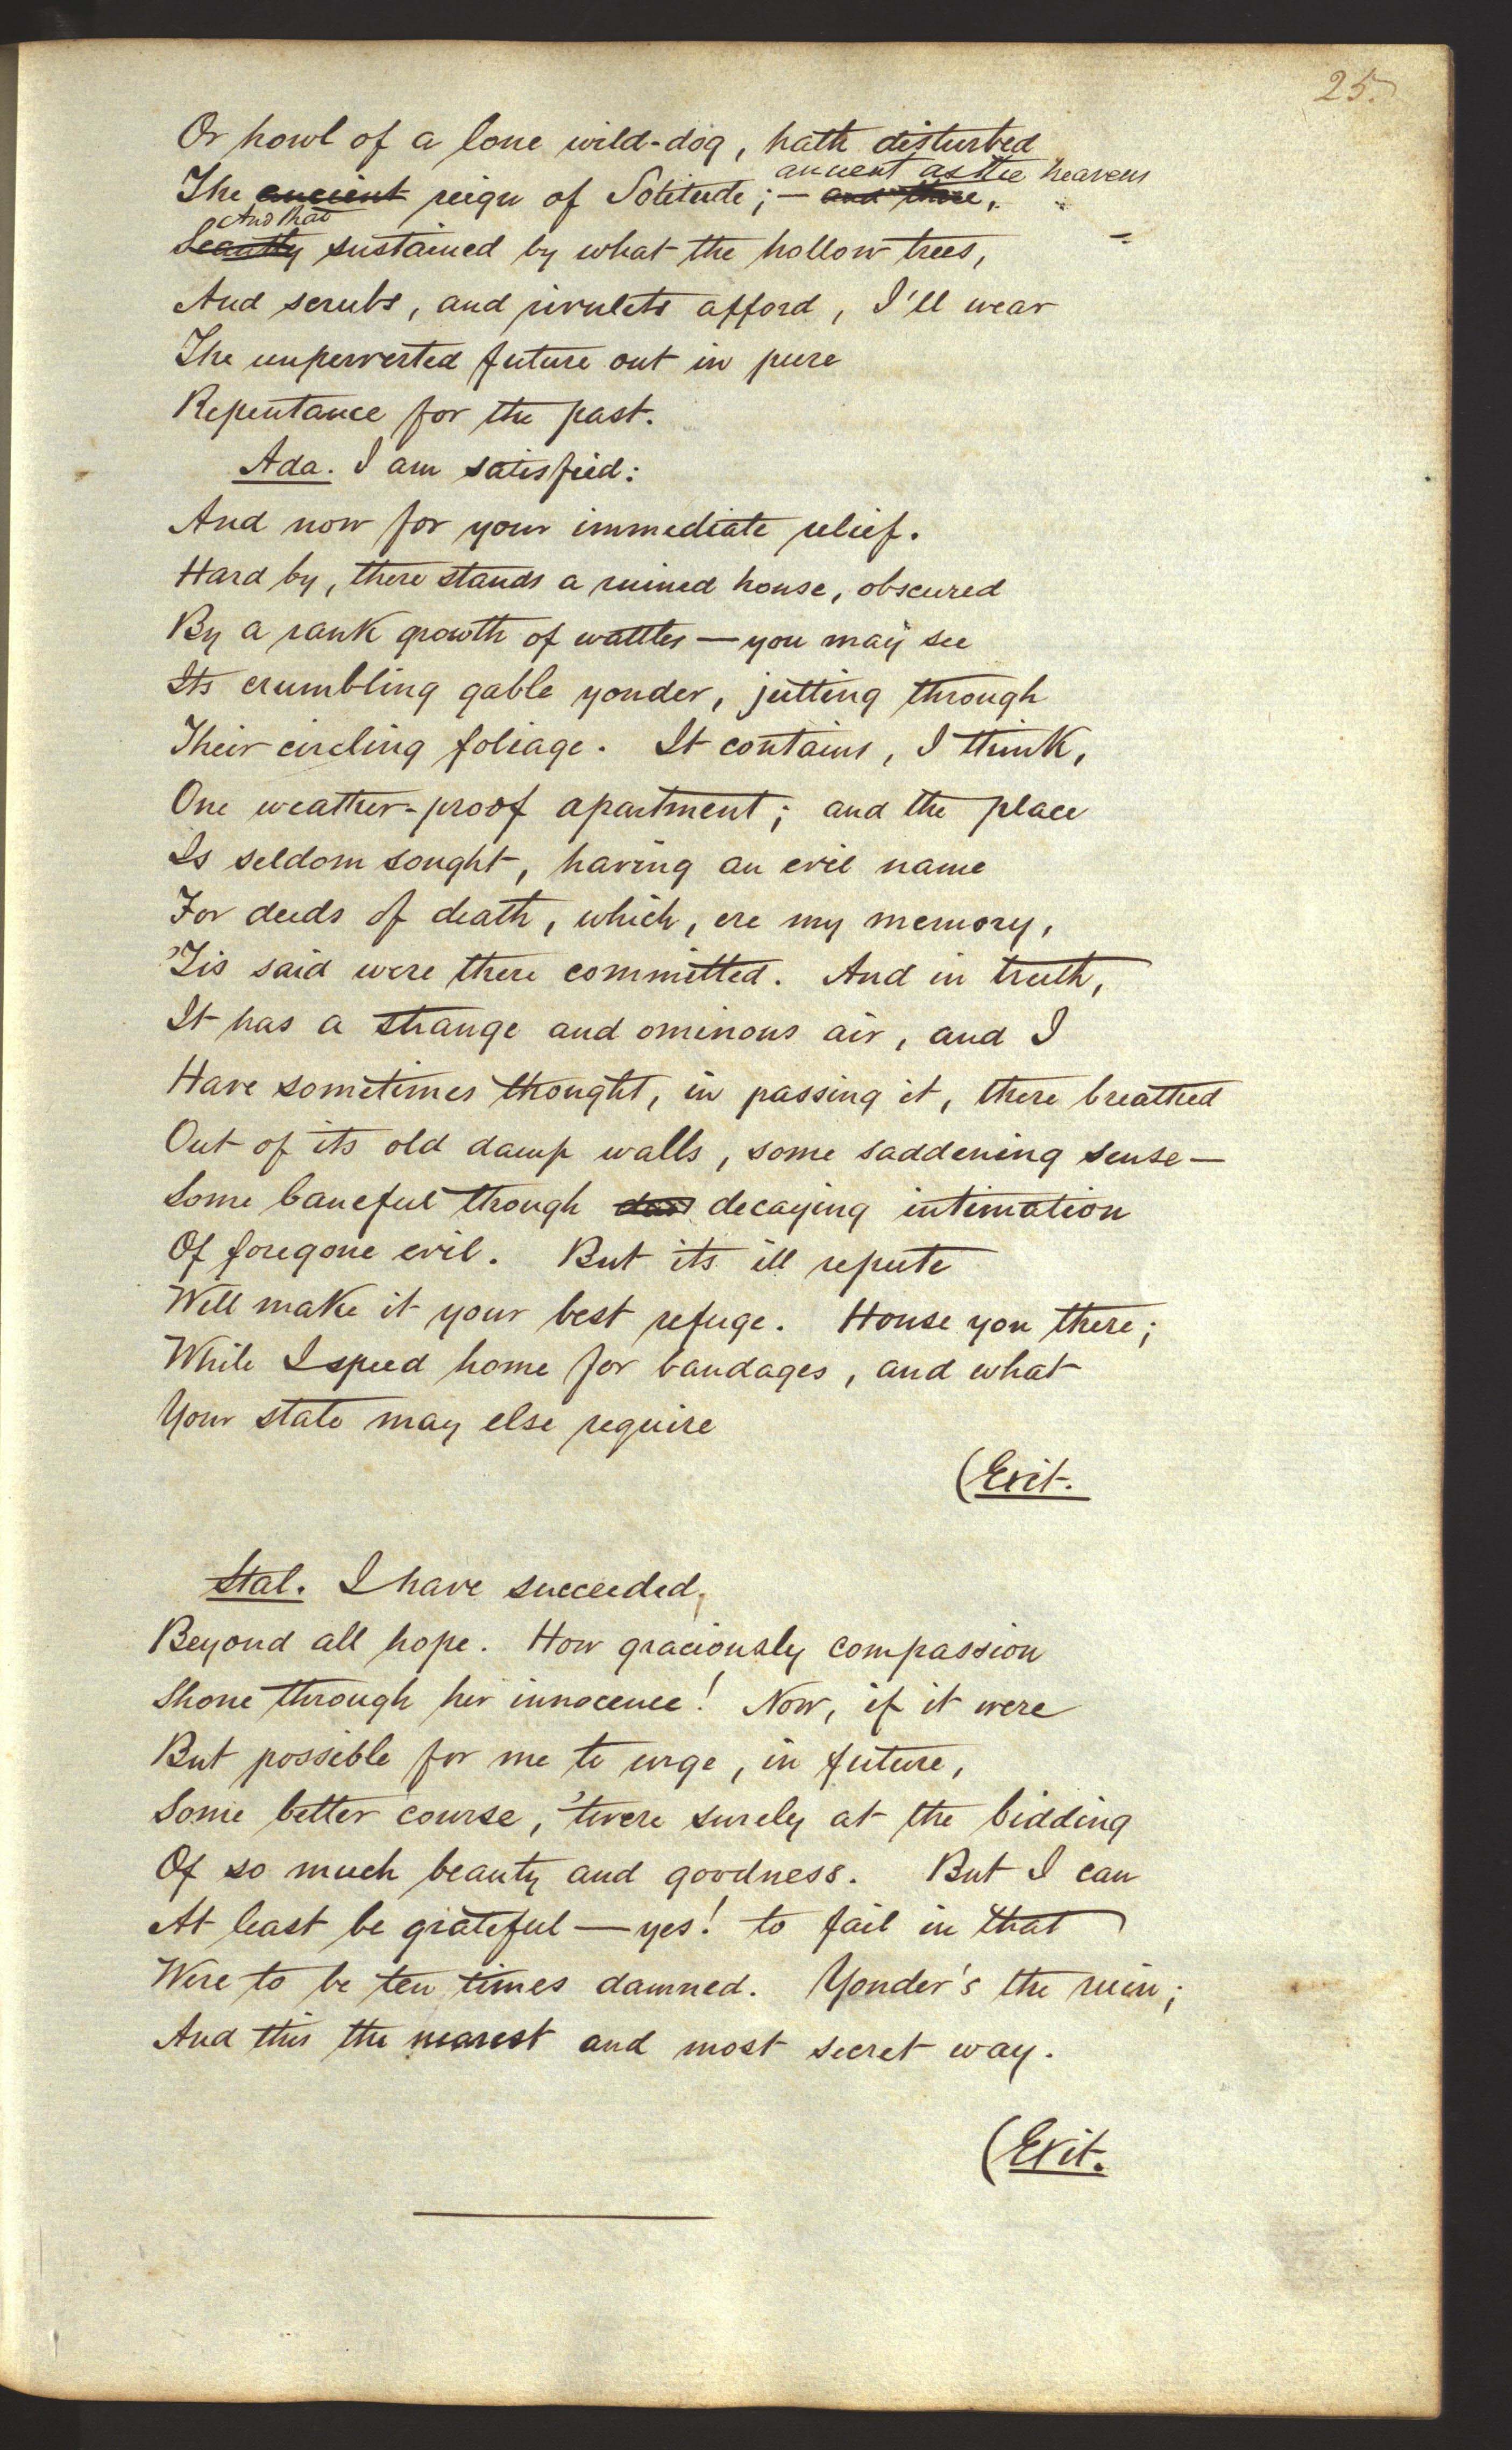 25.
Or howl of a lone wild-dog, hath disturbed
ancient as the heavens
The ancient reign of Solitude; — and there,
And that
Scantly sustained by what the hollow trees,
And scrubs, and rivulets afford, I'll wear
The unperverted future out in pure
Repentance for the past.
Ada. I am satisfied:
And now for your immediate relief.
Hard by, there stands a ruined house, obscured
By a rank growth of wattles — you may see
Its crumbling gable yonder, jutting through
Their circling foliage. It contains, I think,
One weather-proof apartment; and the place
Is seldom sought, having an evil name
For deeds of death, which, ere my memory,
'Tis said were there committed. And in truth,
It has a strange and ominous air, and I
Have sometimes thought, in passing it, there breathed
Out of its old damp walls, some saddening sense —
Some baneful though decaying intimation
Of foregone evil. But its ill repute
Will make it your best refuge. House you there;
While I speed home for bandages, and what
Your state may else require
(Exit.
Stal. I have succeeded,
Beyond all hope. How graciously compassion
Shone through her innocence! Now, if it were
But possible for me to urge, in future,
Some better course, 'twere surely at the bidding
Of so much beauty and goodness. But I can
At least be grateful — yes! to fail in that
Were to be ten times damned. Yonder's the ruin;
And this the nearest and most secret way.
(Exit.